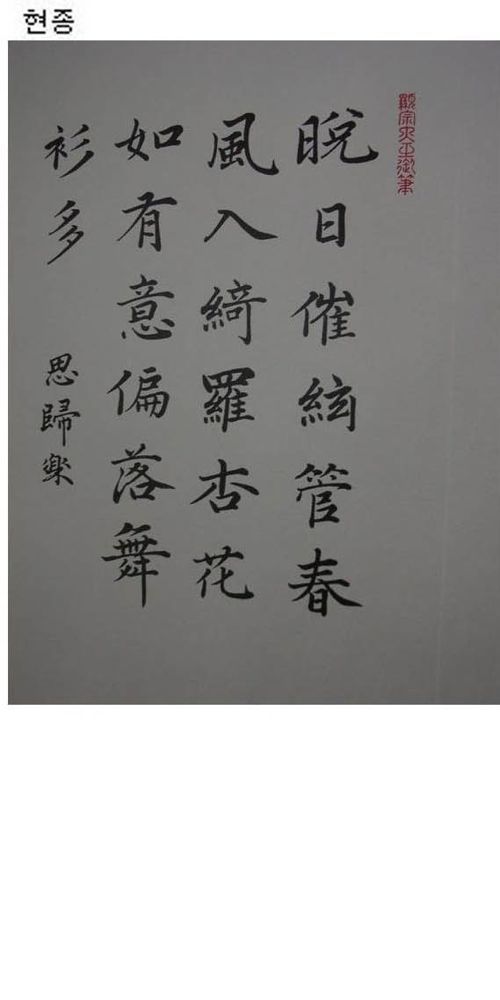 현종
顯宗大王御筆
晩日催絃管春
風入綺羅杏花
如有意偏落舞
衫多 思歸樂